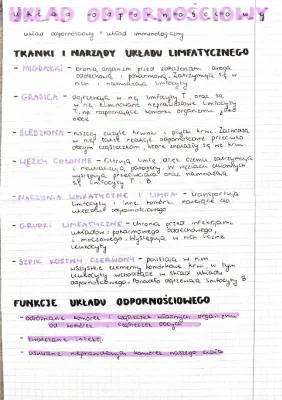 UKŁAD ODPORNOŚCIOWY
układ odpornościowy = układ immunologiczny
TKANKI I NARZĄDY UKŁADU LIMFATYCZNEGO
- MIGDAŁKI - bronią organizm przed zakażeniem drogą
oddechową i pokarmową. Zatrzymują się w
nich i namnażają limfocyty
- GRASICA - dojrzewają w niej limfocyty T oraz są
w niej eliminowane nieprawidłowe limfocyty
T, np. rozpoznające komórki organizmu jako
obce
- ŚLEDZIONA - niszczy zużyte krwinki i płytki krwi. Zachodzą
w niej także reakcje odpornościowe przeciwko
obcym cząsteczkom, które znalazły się we krwi
- WĘZŁY CHŁONNE - filtrują limfę, dzięki czemu zatrzymują
i neutralizują patogeny. W węzłach chłonnych
występują przeciwciała oraz namnażają
się limfocyty T i B
- NACZYNIA LIMFATYCZNE I LIMFA - transportują
limfocyty i inne komórki należące do
układu odpornościowego
- GRUDKI LIMFATYCZNE - chronią przed infekcjami
układów: pokarmowego, oddechowego,
i moczowego. Występują w nich liczne
leukocyty
- SZPIK KOSTNY CZERWONY - powstają w nim
wszystkie elementy komórkowe krwi, w tym
leukocyty wchodzące w skład układu
odpornościowego. Ponadto dojrzewają limfocyty B
FUNKCJE UKŁADU ODPORNOŚCIOWEGO
- odróżnianie komórek i cząsteczek własnych organizmu
od komórek i cząsteczek obcych
- zwalczanie infekcji
- usuwanie nieprawidłowych komórek naszego ciała